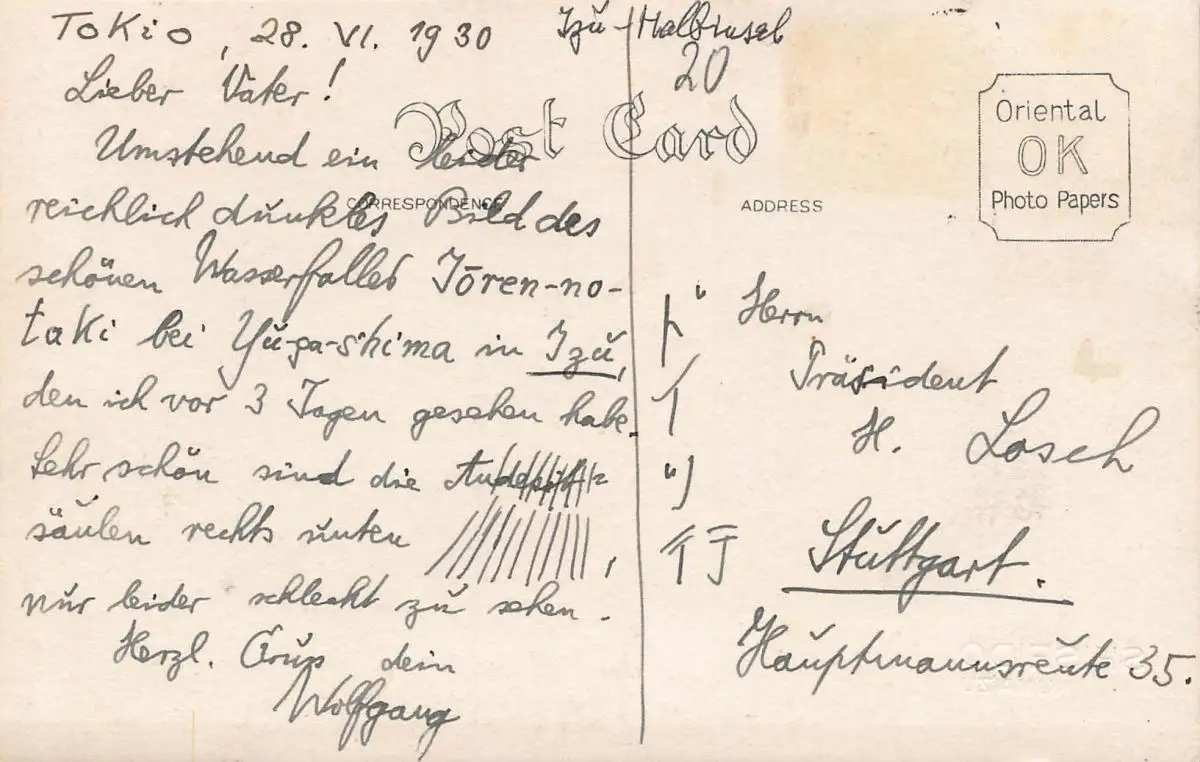 Tokio, 28. VI. 1930
Izu-Halbinsel
20
Lieber Vater!
Post Card
Umstehend ein leider
CORRESPONDENCE
reichlich dunkles Bild des
schönen Wasserfalles Jōren-no-
taki bei Yu-ga-shima in Izu,
den ich vor 3 Tagen gesehen habe.
Sehr schön sind die Andesit=
säulen rechts unten,
nur leider schlecht zu sehen.
Herzl. Gruß dein
Wolfgang
ADDRESS
Oriental
OK
Photo Papers
ドイツ行
Herrn
Präsident
H. Losch
Stuttgart.
Hauptmannsreute 35.